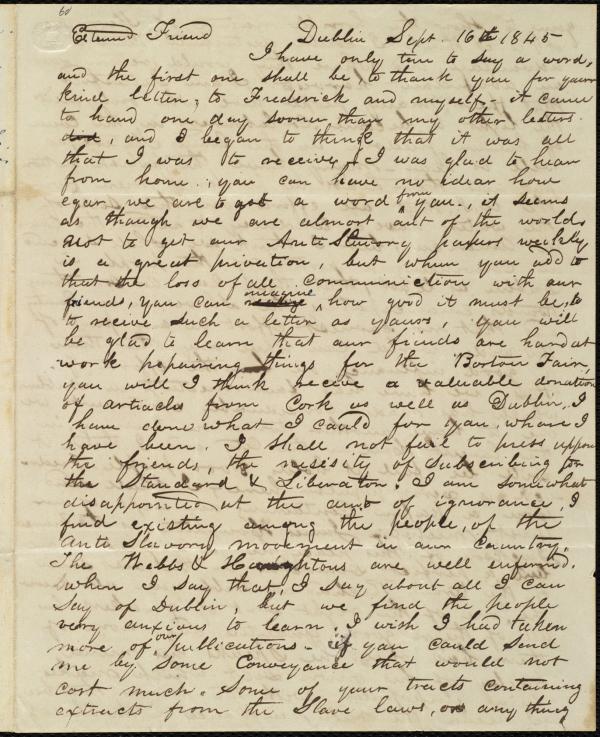 60
Esteemed Friend Dublin Sept. 16th 1845
I have only time to say a word,
and the first one shall be, to thank you for your
kind letter, to Frederick and myself,- it came
to hand one day sooner, than my other letters.
did, and I began to think that it was all
that I was to receive, I was glad to hear
from home. you can have no idear how
egar we are to get a word from you., it seems
as though we are almost out of the world,
not to get our Anti Slavery papers weekly
is a great privation, but when you add to
that the loss of all communiction with our
friends, you can realize imagine, how good it must be, to
to recive such a letter as yours, you will
be glad to learn that our friends are hard at
work repairing things for the Boston Fair,
you will I think receive a valuable donation
of artiacls from Cork as well as Dublin, I
have done what I could for you, where I
have been. I shall not fail to press uppon
the friends, the nesisity of Subscribing for
the Standard & Liberator, I am somewhat
disappointed at the amt of ignorance, I
find existing among the people, of the
Anti Slavory movement in our Country.
The Webbs & Haughtons are well enfirmd.
when I say that, I say about all I can
say of Dublin, but we find the people
very anxious to learn. I wish I had taken
more of our publications - if you could send
me by some conveyance that would not
cost much. Some of your tracts containing
extracts from the Slave laws, or any thing